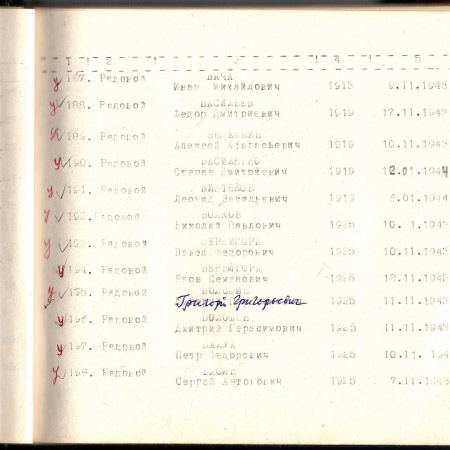 1 2 3 4 5
187. Рядовой ВАЧА
Иван Михайлович 1913 9.11.1943
188. Рядовой ВАСИЛЬЕВ
Федор Дмитриевич 1919 17.11.1943
189. Рядовой
Алексей Афанасьевич 1919 10.11.1943
190. Рядовой ВАСИЛЕНКО
Степан Дмитриевич 1919 12.01.1944
191. Рядовой
Леонид Васильевич 1919
192. Рядовой ВОЛКОВ
Николай Павлович 1925
193. Рядовой ВЕРНИГОРА
Павел Федорович 1925 10.11.1943
194. Рядовой ВЕРНИГОРА
Яков Семенович 1925 18.11.1943
195. Рядовой ВОЛОШИН
Григорий Григорьевич 1925 11.11.1943
196. Рядовой ВОЛОШИН
Дмитрий Герасимович 1925 11.11.1943
197. Рядовой
Петр Федорович 1925 10.11.194
198. Рядовой
Сергей Антонович 1925 7.11.1943